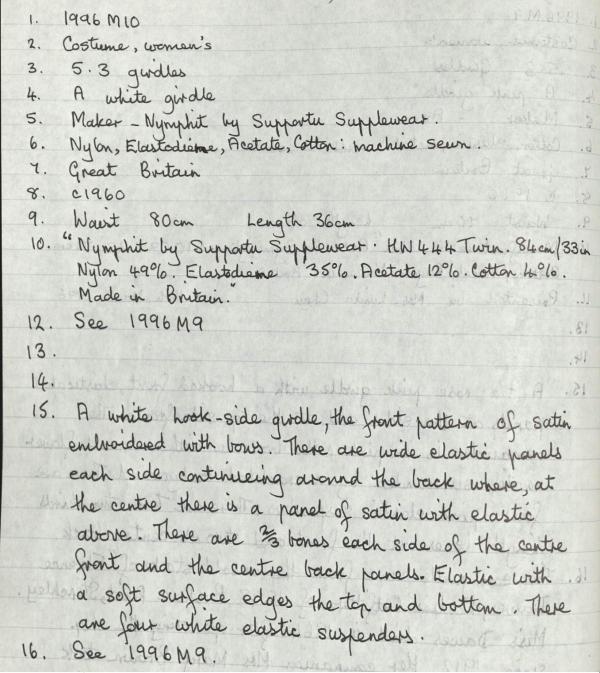 1. 1996 M10
2. Costume, women's
3. 5.3 girdles
4. A white girdle
5. Maker - Nymphit by Supportu Supplewear.
6. Nylon, Elastodieme, Acetate, Cotton: machine sewn.
7. Great Britain
8. c1960
9. Waist 80cm Length 36cm
10. "Nymphit by Supportu Supplewear. HW444 Twin. 84cm/33in
Nylon 49%. Elastodieme 35%. Acetate 12%. Cotton 4%.
Made in Britain."
12. See 1996 M9
13.
14.
15. A white hook-side girdle, the front pattern of satin
embroidered with bows. There are wide elastic panels
each side continueing around the back where, at
the centre there is a panel of satin with elastic
above. There are 2/3 bones each side of the centre
front and the centre back panels. Elastic with
a soft surface edges the top and bottom. There
are four white elastic suspenders.
16. See 1996 M9.